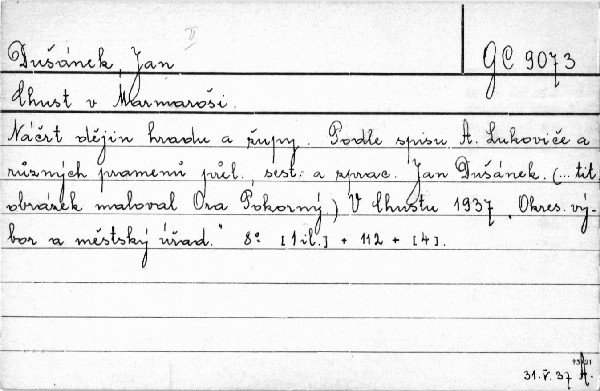 Dušánek, Jan II GC 9073
Chust v Marmaroši.
Náčrt dějin hradu a župy. Podle spisu A. Lukoviče a
různých pramenů přel. sest. a zprac. Jan Dušánek. (... tit.
obrázek maloval Ora Pokorný.) V Chustu 1937. Okres. vý-
bor a městský úřad." 8° [1 il.] + 112 + [4].
31.V.37 A.